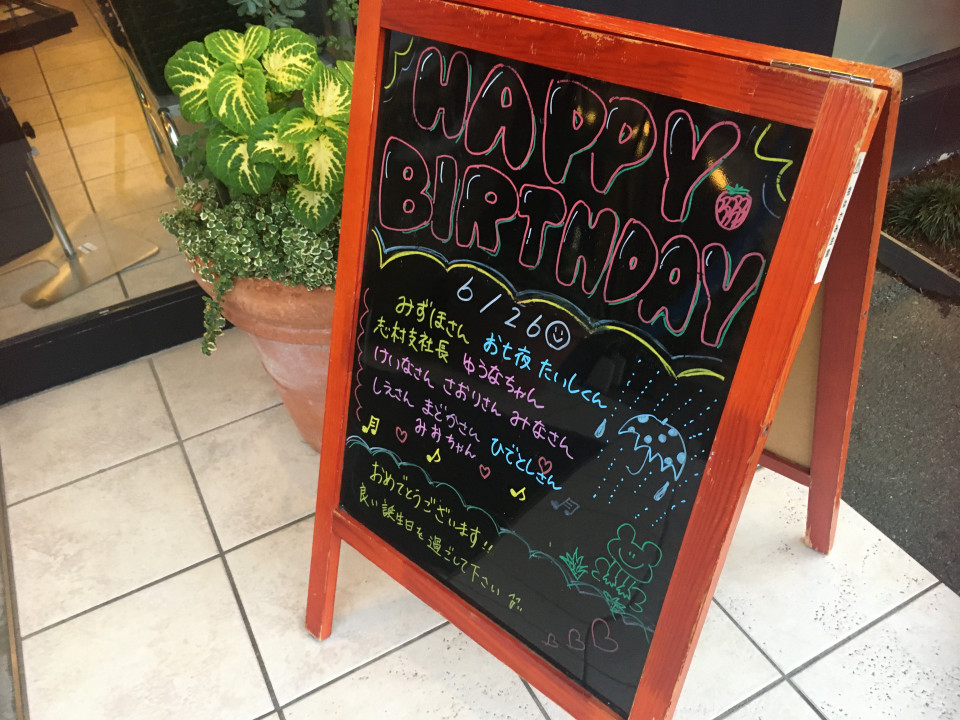 HAPPY
BIRTHDAY
6/26
みずほさん お七夜 たいしくん
志村支社長 ゆうなちゃん
けいなさん さおりさん みなさん
しえさん まどかさん ひでとしさん
みおちゃん
おめでとうございます!!
良い誕生日を過ごして下さい